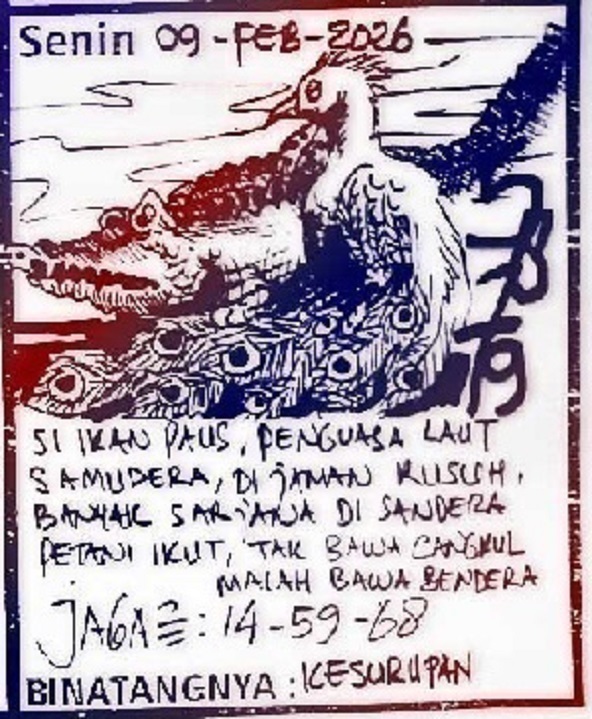 Senin 09-FEB-2026
SI IKAN PAUS, PENGUASA LAUT
SAMUDERA, DI JAMAN RUSUH,
BANYAK SARJANA DI SANDERA
PETANI IKUT, TAK BAWA CANGKUL
MALAH BAWA BENDERA
JAGA2=: 14-59-68
BINATANGNYA : KESURUPAN